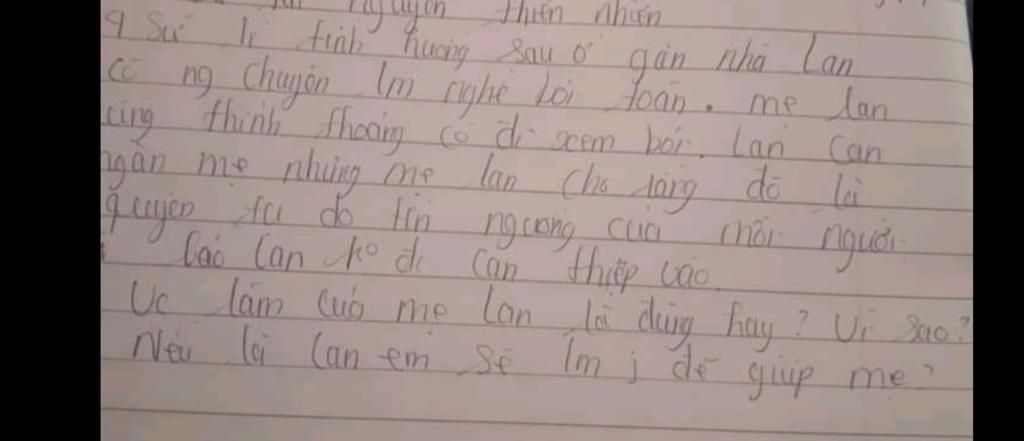 nguyên thiên nhiên
9 Sử lí tình huống sau ở gần nhà Lan
có ng chuyên lm nghề bói toán. mẹ lan
cũng thỉnh thoảng có đi xem bói. Lan can
ngăn mẹ nhưng mẹ lan cho rằng đó là
quyền tự do tín ngưỡng của mỗi người
bảo lan ko đc can thiệp vào.
Vc làm của mẹ Lan là đúng hay? Vì sao?
Nếu là lan em sẽ lm j để giúp mẹ?